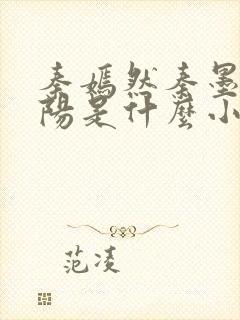 秦嫣然秦墨
陽是什麼小
范凌